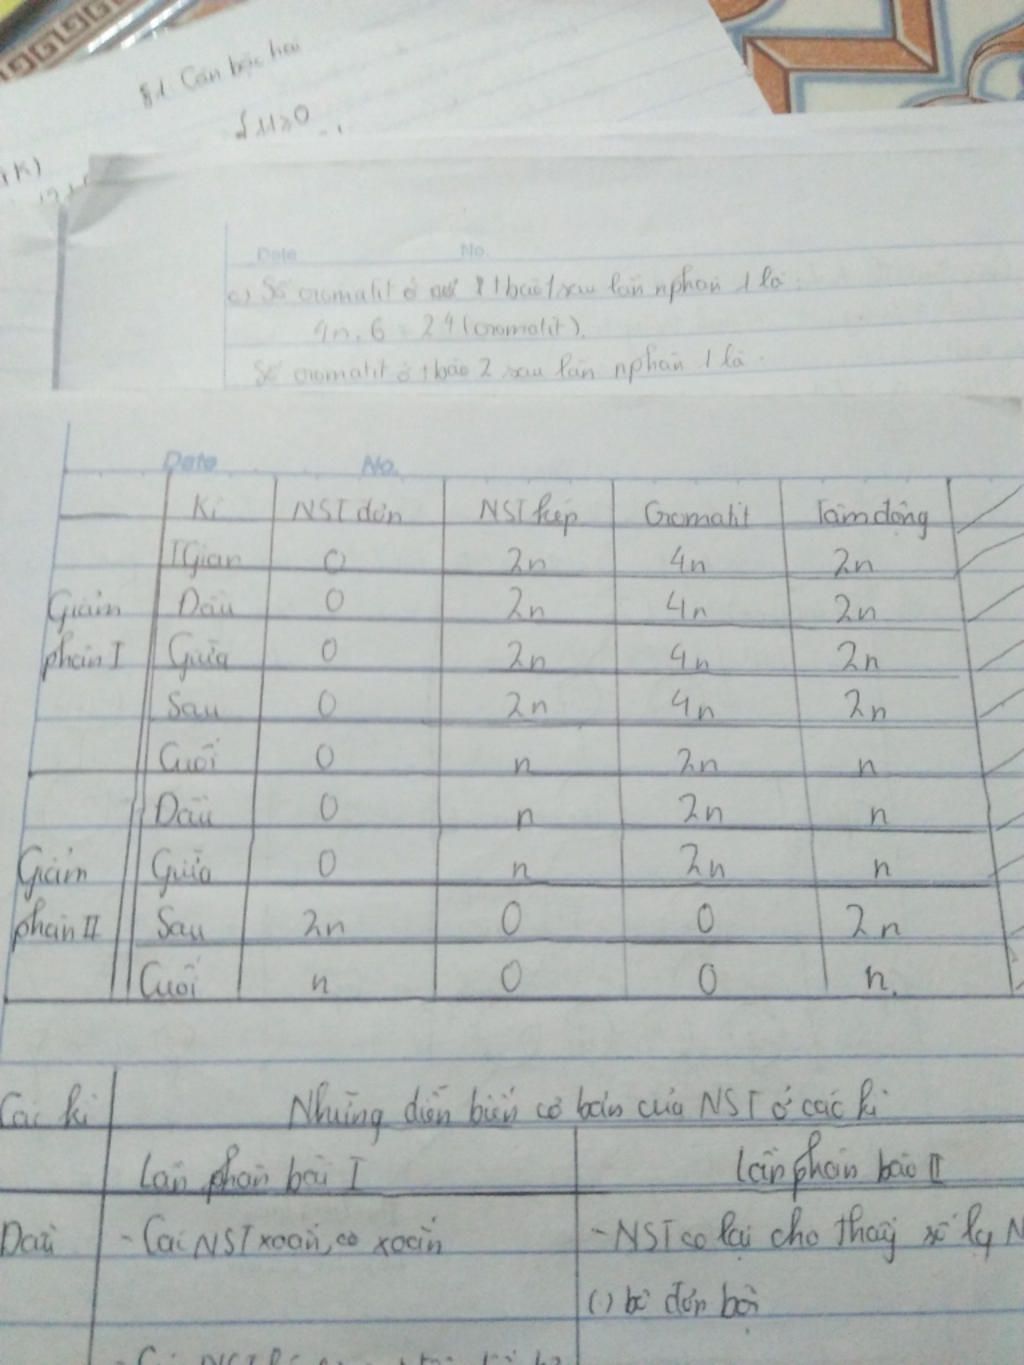 §1. Căn bậc hai
Date No.
c) Số cromatit ở 1 bào 1 sau lần nphân 1 là:
4n. 6 = 24 (cromatit).
Số cromatit ở t bào 2 sau lần nphân 1 là
Date No.
Kì NST đơn NST kép Cromatit Tâm động
TGian 0 2n 4n 2n
Giảm Đầu 0 2n 4n 2n
phân I Giữa 0 2n 4n 2n
Sau 0 2n 4n 2n
Cuối 0 n 2n n
Đầu 0 n 2n n
Giảm Giữa 0 n 2n n
phân II Sau 2n 0 0 2n
Cuối n 0 0 n.
Các kì Những diễn biến cơ bản của NST ở các kì
Lần phân bài I Lần phân bào II
Đầu - Các NST xoắn, co xoắn - NST co lại cho thấy số lg N
() bộ đơn bội